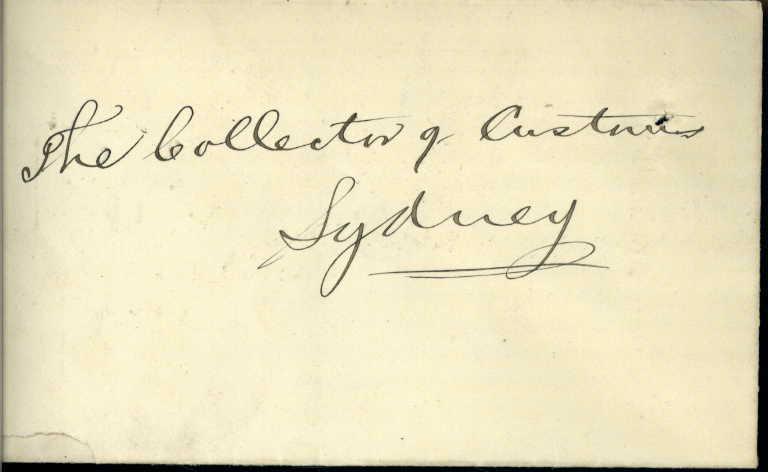 The Collector of Customs
Sydney